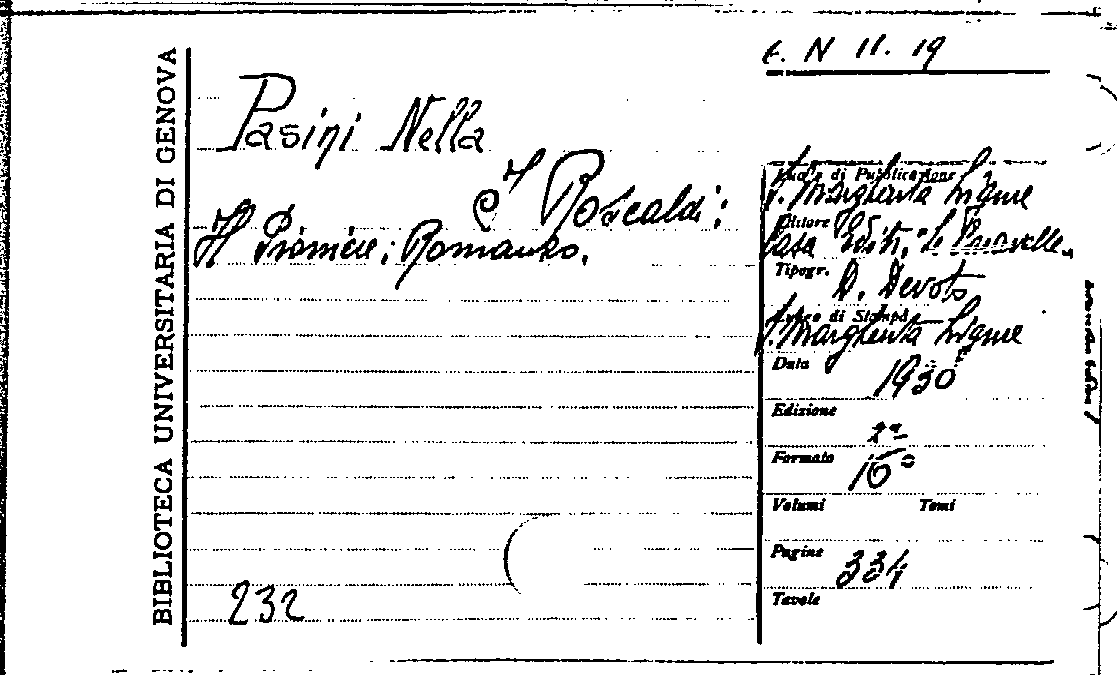 6. N 11. 19
BIBLIOTECA UNIVERSITARIA DI GENOVA
Pasini Nella
I Roscaldi:
Il Pioniere; Romanzo.
232
Luogo di Pubblicazione
S. Margherita Ligure
Editore
Casa Edit. "Le Caravelle"
Tipogr.
D. Devoto
Luogo di Stampa
S. Margherita Ligure
Data
1930
Edizione
2ª
Formato
16°
Volumi Tomi
Pagine
334
Tavole